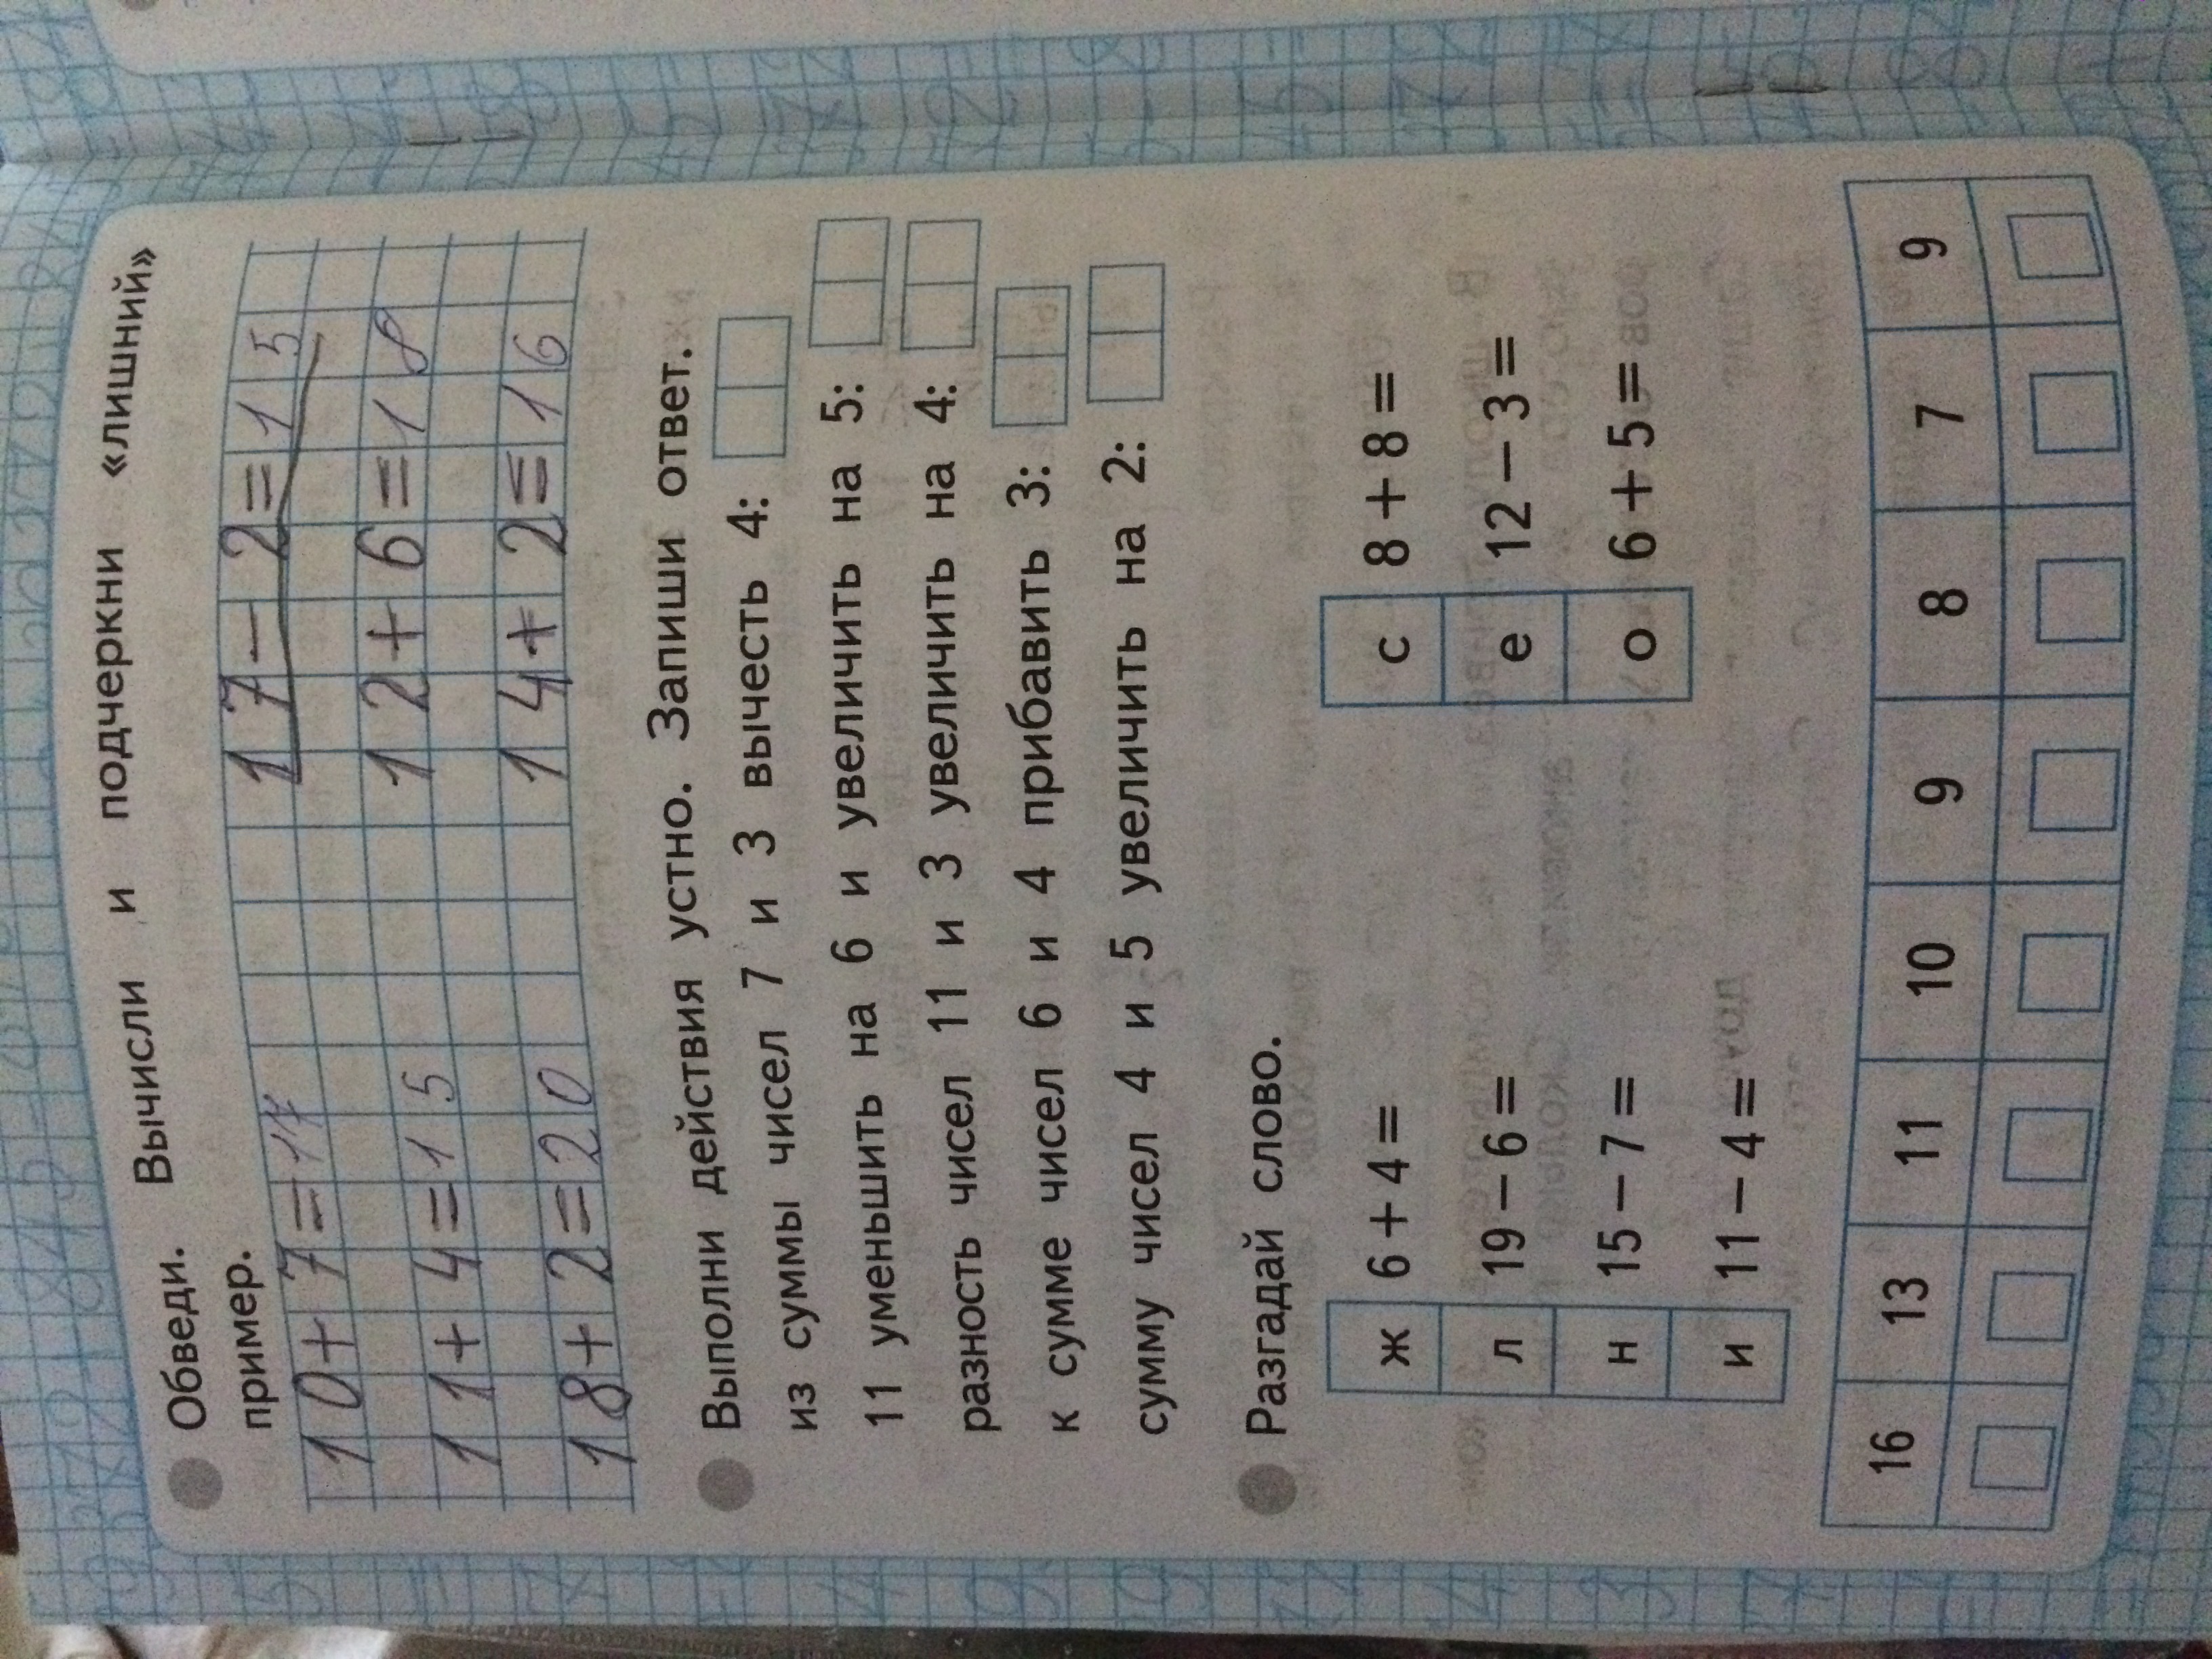 Обведи. Вычисли и подчеркни «лишний»
пример.
10+7=17 17-2=15
11+4=15 12+6=18
18+2=20 14+2=16
Выполни действия устно. Запиши ответ.
из суммы чисел 7 и 3 вычесть 4:
11 уменьшить на 6 и увеличить на 5:
разность чисел 11 и 3 увеличить на 4:
к сумме чисел 6 и 4 прибавить 3:
сумму чисел 4 и 5 увеличить на 2:
Разгадай слово.
ж 6+4= с 8+8=
л 19-6= е 12-3=
н 15-7= о 6+5=
и 11-4=
16 13 11 10 9 8 7 9